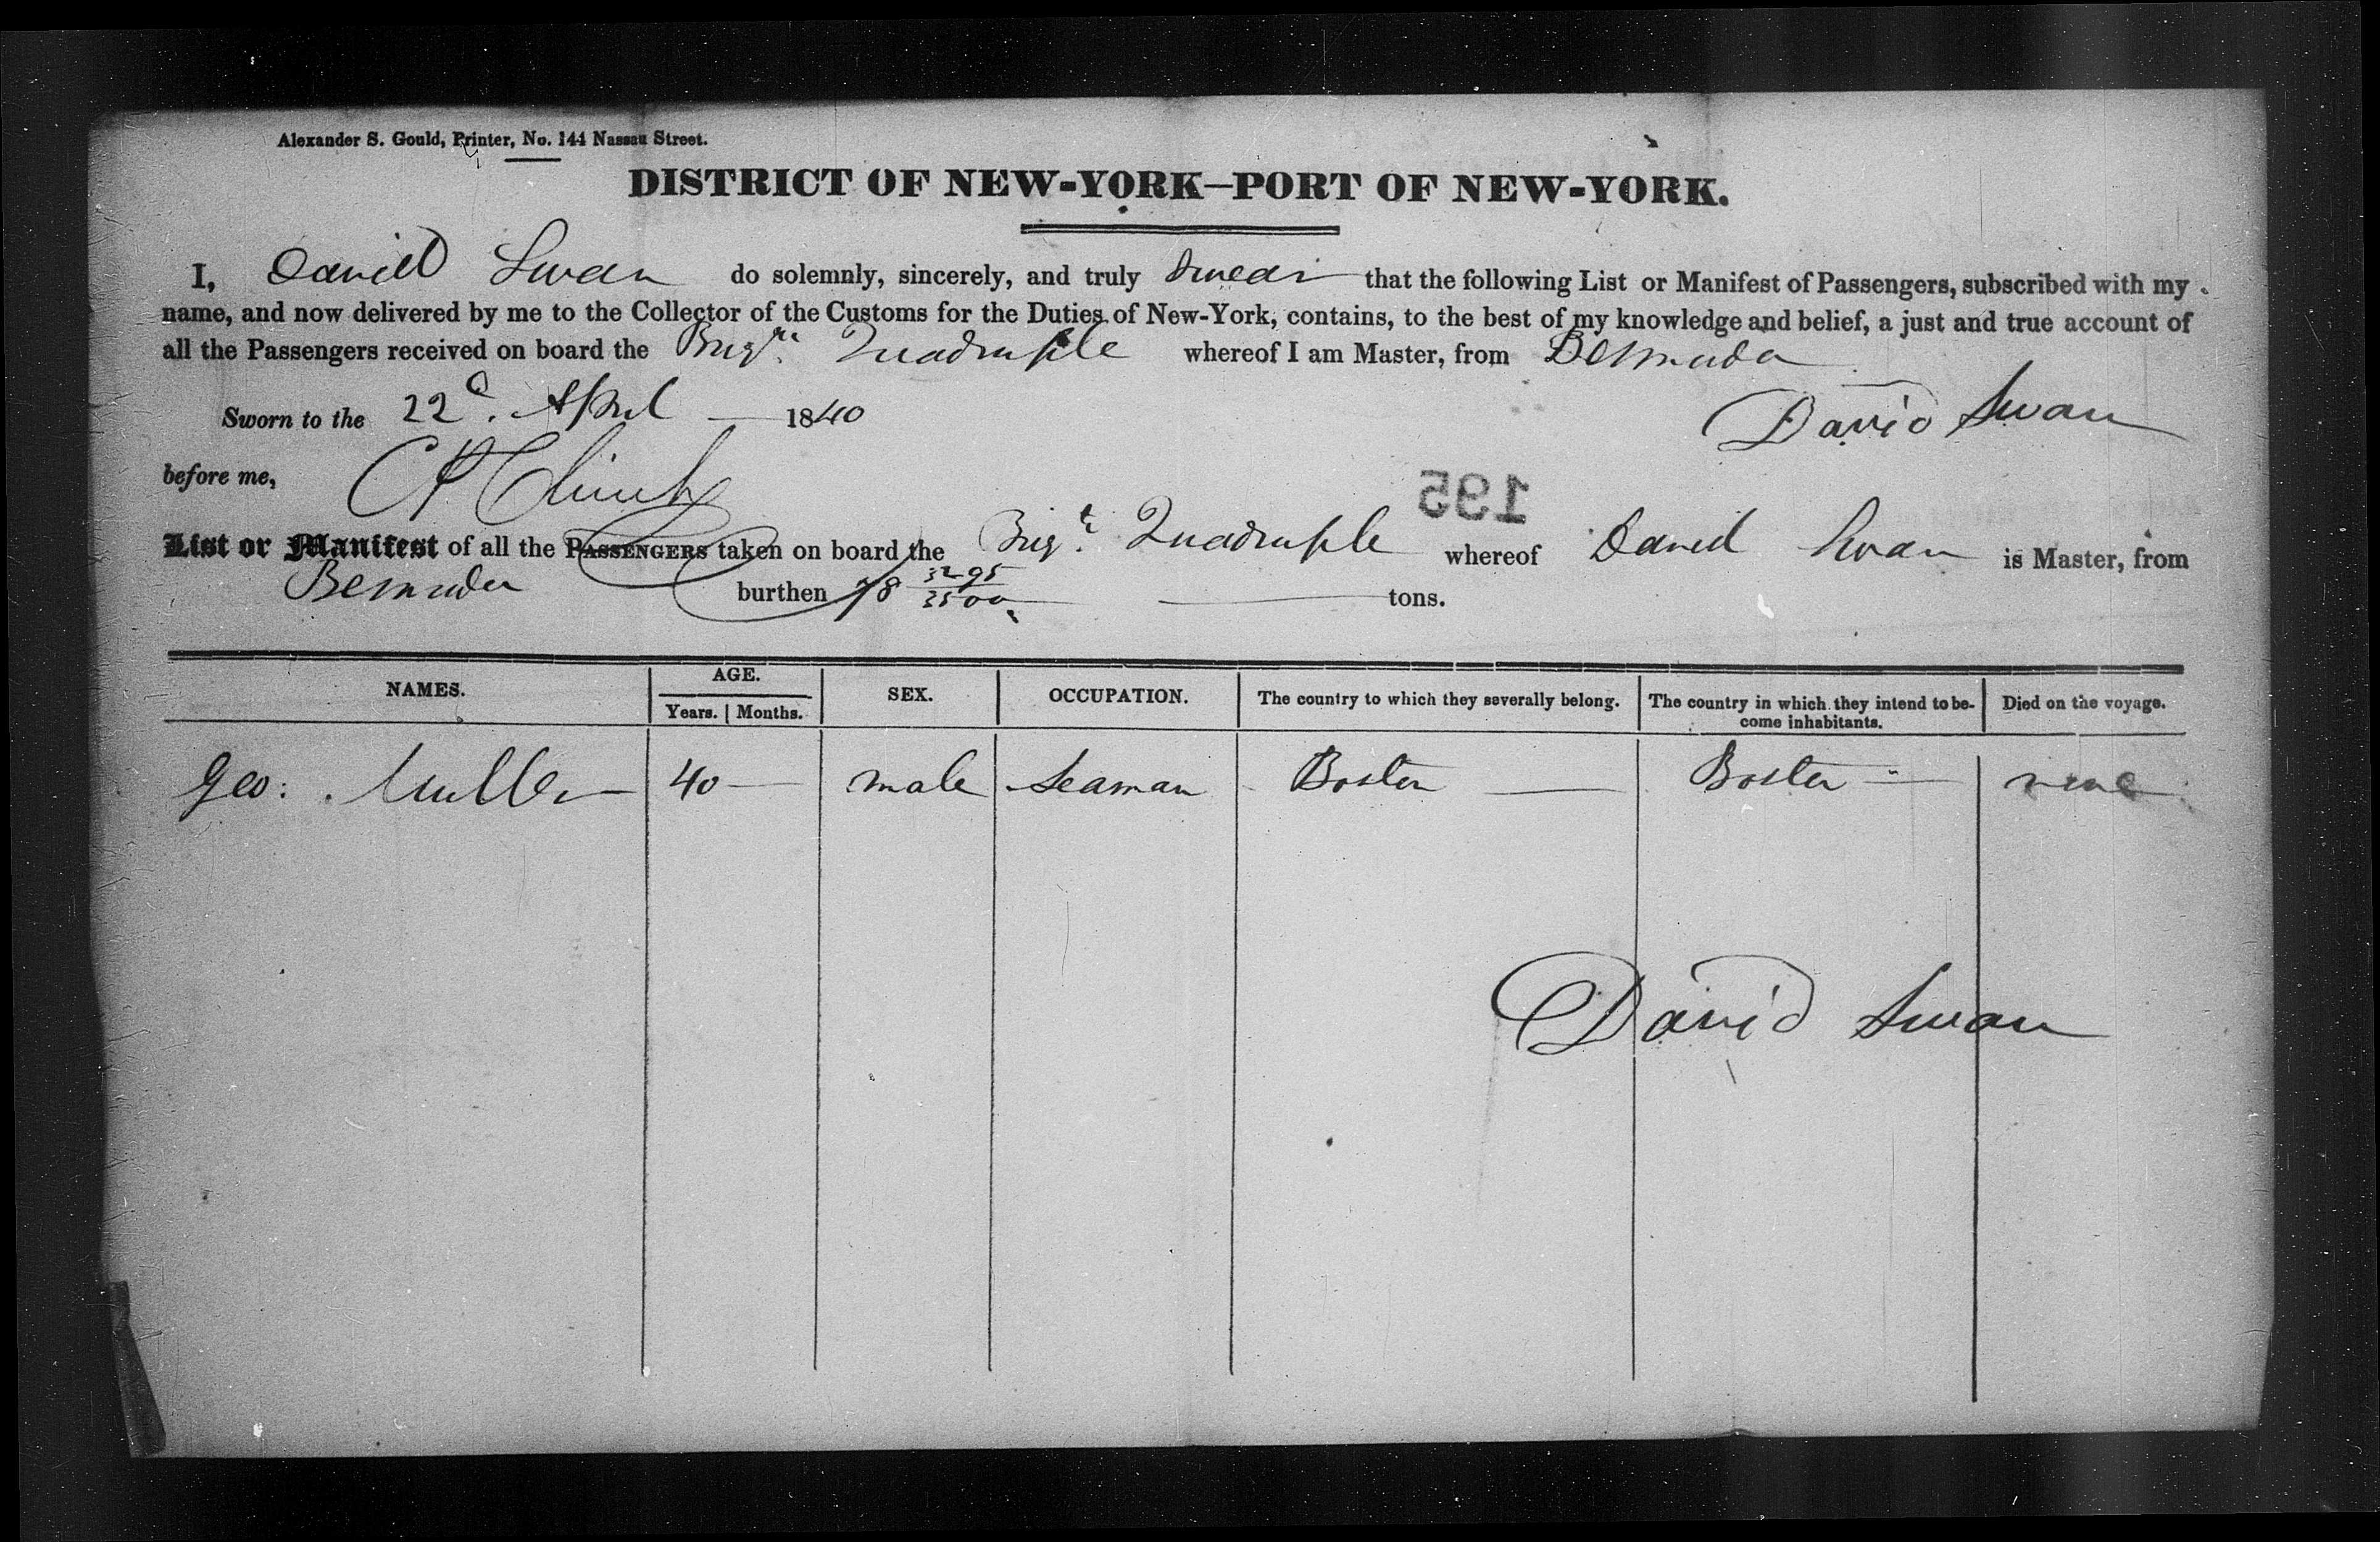 Alexander S. Gould, Printer, No. 144 Nassau Street.
DISTRICT OF NEW-YORK—PORT OF NEW-YORK.
I, David Swan do solemnly, sincerely, and truly swear that the following List or Manifest of Passengers, subscribed with my
name, and now delivered by me to the Collector of the Customs for the Duties of New-York, contains, to the best of my knowledge and belief, a just and true account of
all the Passengers received on board the Brigr. Quadruple whereof I am Master, from Bermuda
Sworn to the 22d. April — 1840
David Swan
before me,
195
List or Manifest of all the PASSENGERS taken on board the Brigt. Quadruple whereof David Swan is Master, from
Bermuda burthen 78 3295/3500 tons.
NAMES. AGE. SEX. OCCUPATION. The country to which they severally belong. The country in which they intend to be- Died on the voyage.
Years. Months. come inhabitants.
Geo: Muller 40 — male Seaman Boston — Boston — none
David Swan